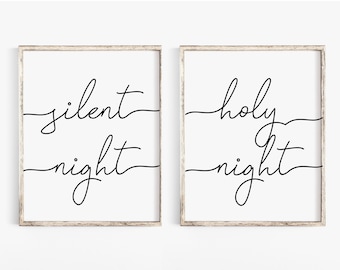 silent
night
holy
night